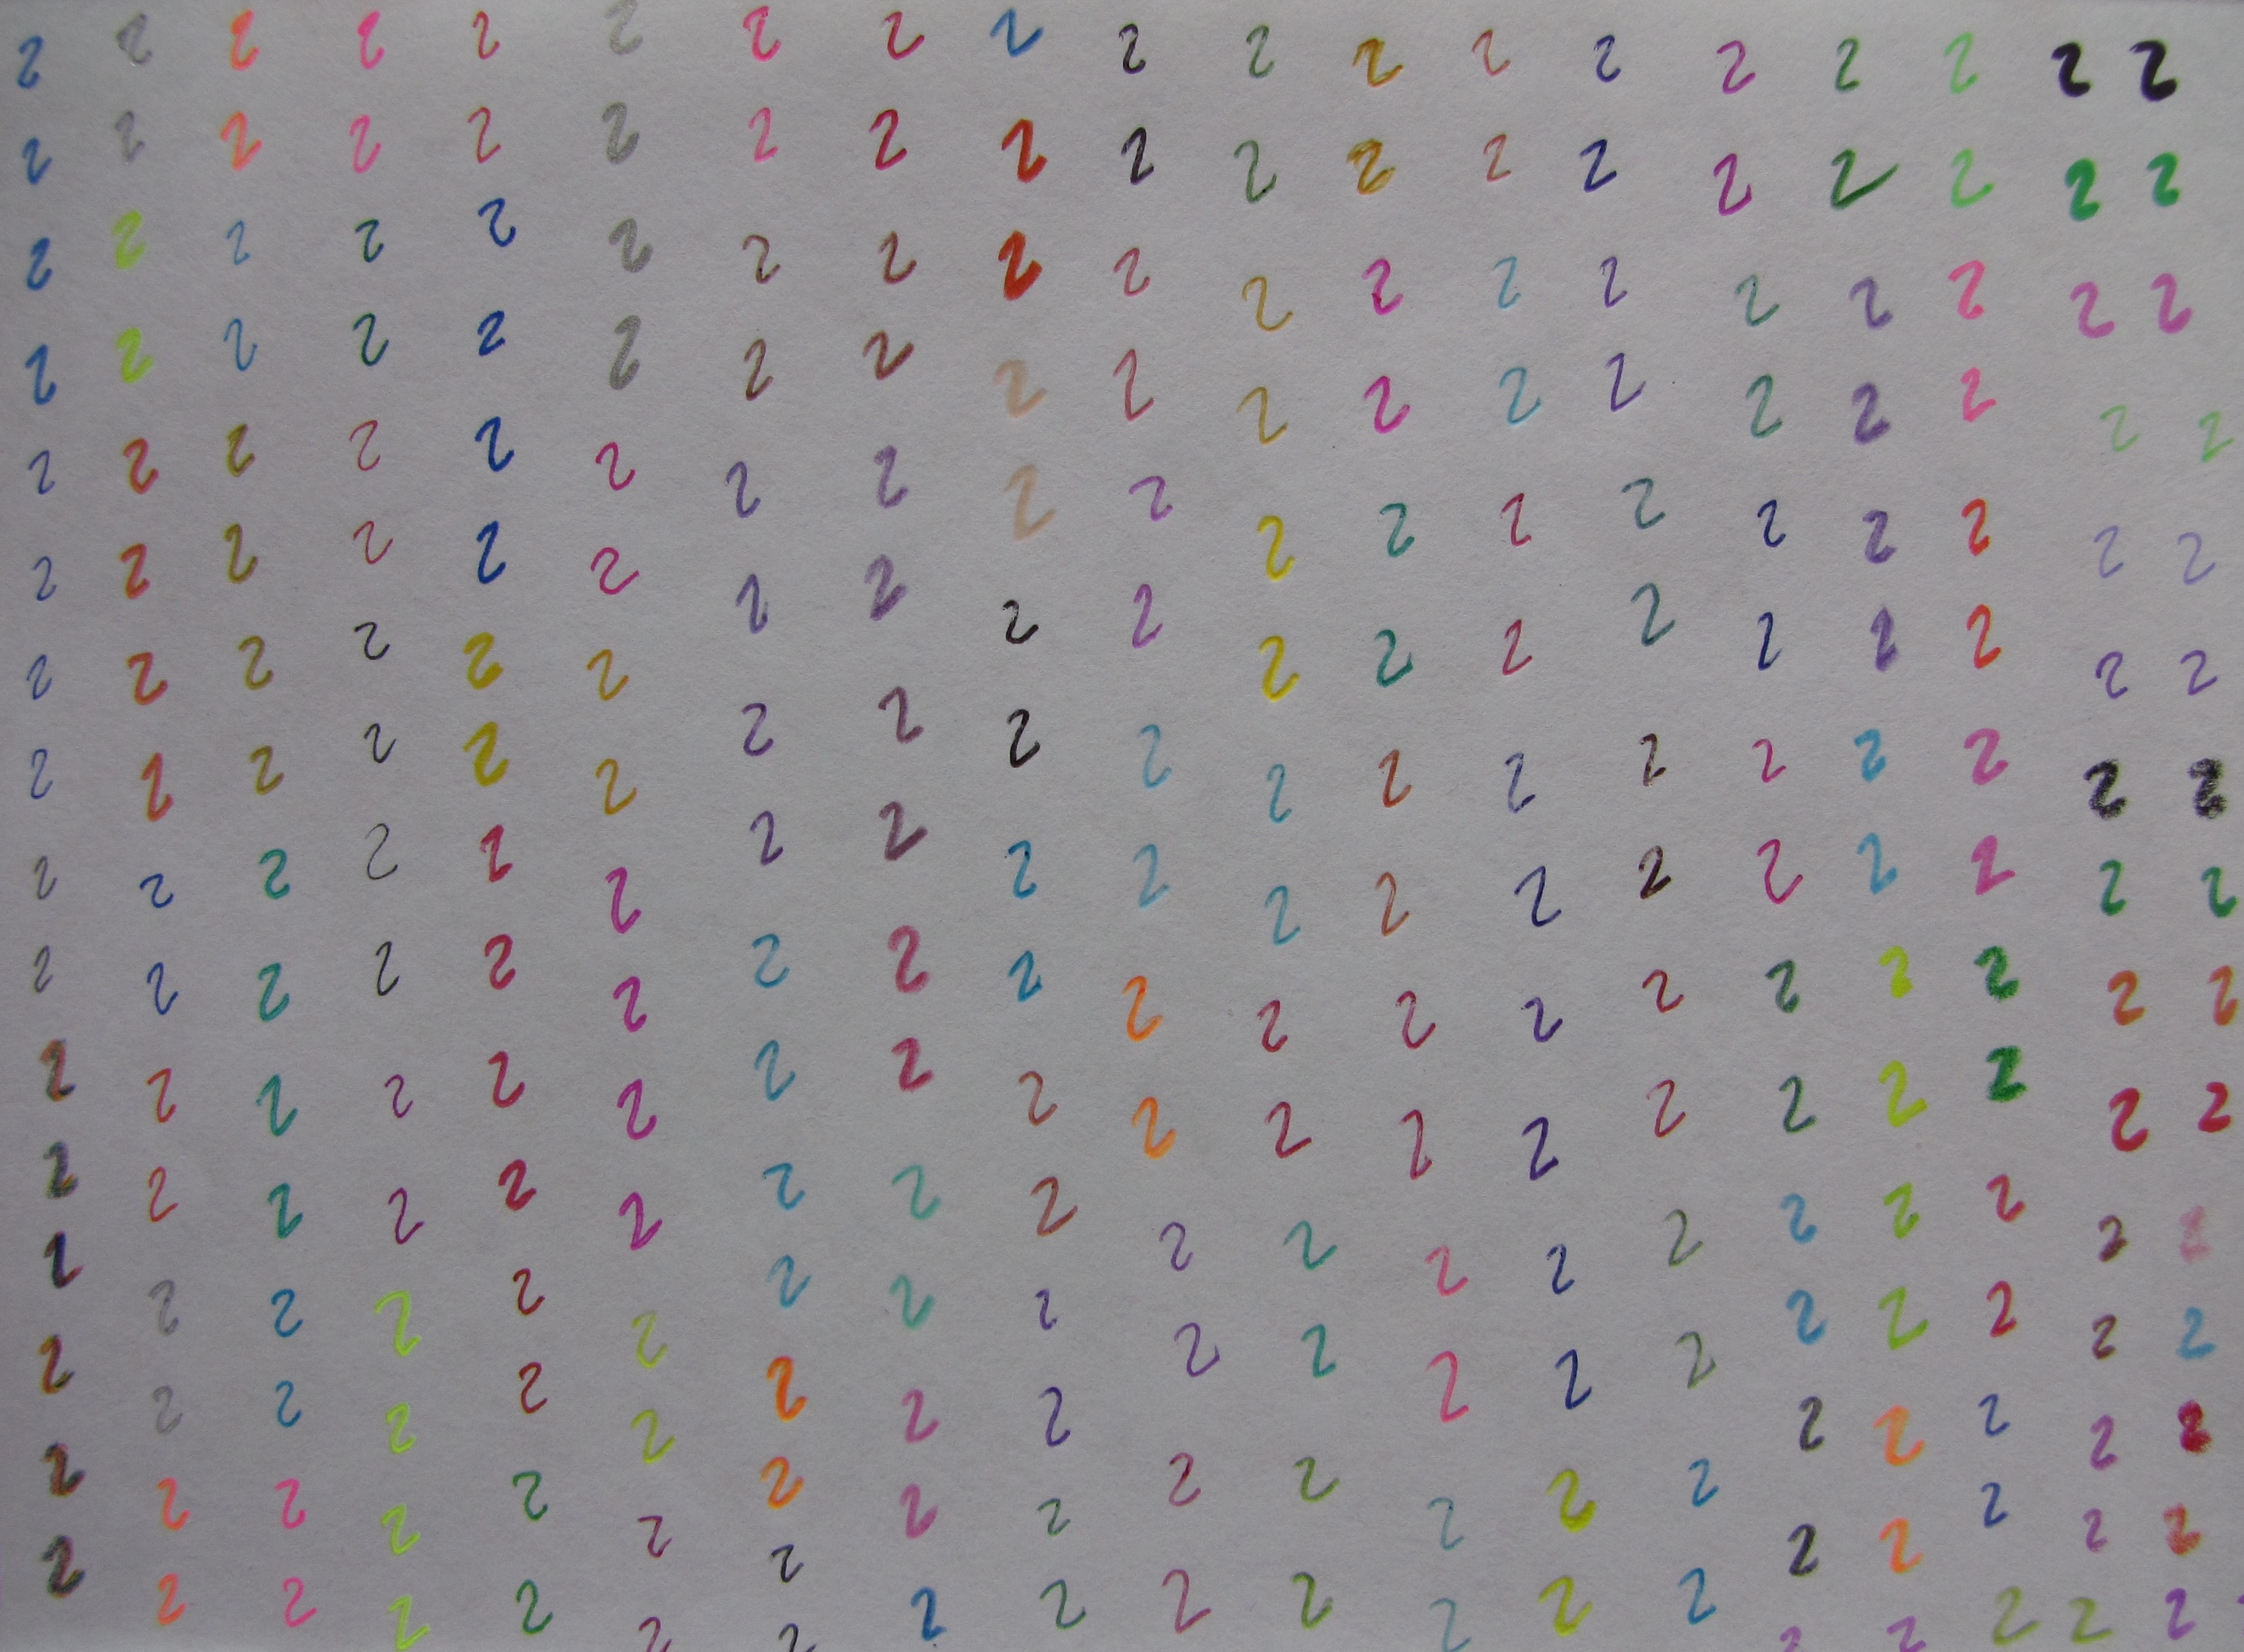 2 2 2 2 2 2 2 2 2 2 2 2 2 2 2 2 2 2 2
2 2 2 2 2 2 2 2 2 2 2 2 2 2 2 2 2 2 2
2 2 2 2 2 2 2 2 2 2 2 2 2 2 2 2 2 2 2
2 2 2 2 2 2 2 2 2 2 2 2 2 2 2 2 2 2 2
2 2 2 2 2 2 2 2 2 2 2 2 2 2 2 2 2 2 2
2 2 2 2 2 2 2 2 2 2 2 2 2 2 2 2 2 2 2
2 2 2 2 2 2 2 2 2 2 2 2 2 2 2 2 2 2 2
2 2 2 2 2 2 2 2 2 2 2 2 2 2 2 2 2 2 2
2 2 2 2 2 2 2 2 2 2 2 2 2 2 2 2 2 2 2
2 2 2 2 2 2 2 2 2 2 2 2 2 2 2 2 2 2 2
2 2 2 2 2 2 2 2 2 2 2 2 2 2 2 2 2 2 2
2 2 2 2 2 2 2 2 2 2 2 2 2 2 2 2 2 2 2
2 2 2 2 2 2 2 2 2 2 2 2 2 2 2 2 2 2 2
2 2 2 2 2 2 2 2 2 2 2 2 2 2 2 2 2 2 2
2 2 2 2 2 2 2 2 2 2 2 2 2 2
2 2 2 2 2 2 2